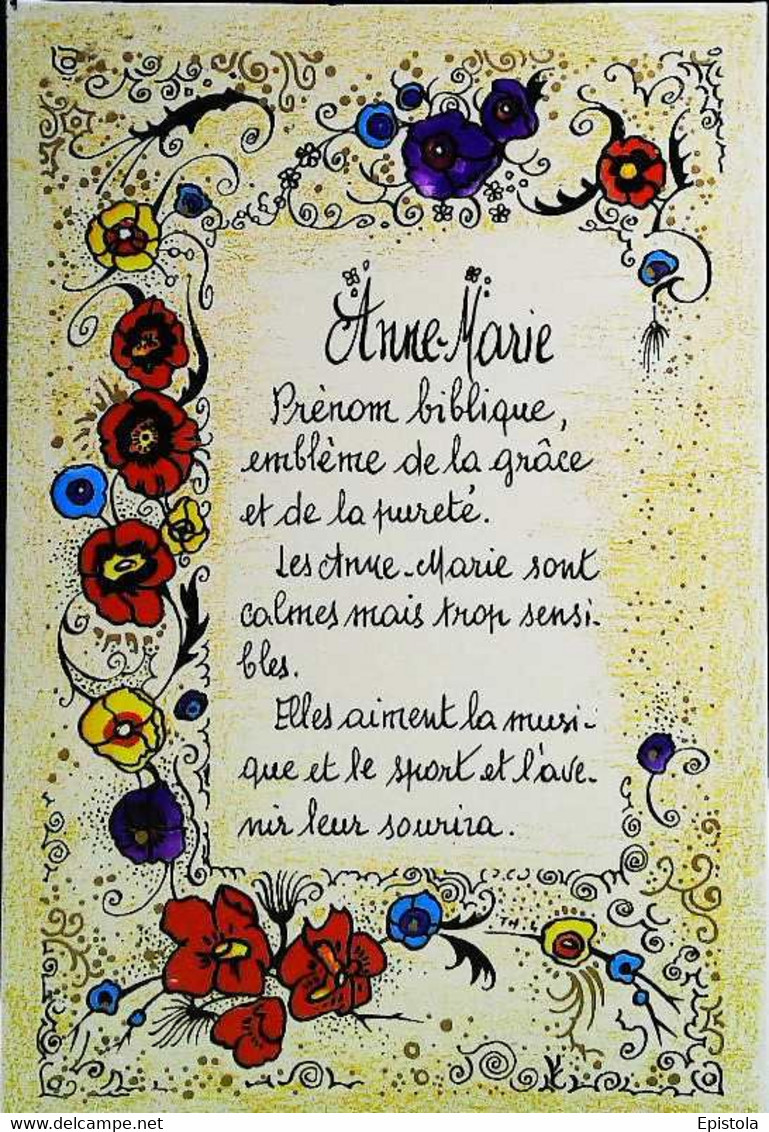 Anne-Marie
Prénom biblique,
emblème de la grâce
et de la pureté.
Les Anne-Marie sont
calmes mais trop sensi-
bles.
Elles aiment la musi-
que et le sport et l'ave-
nir leur sourira.
TH
www.delcampe.net
Epistola